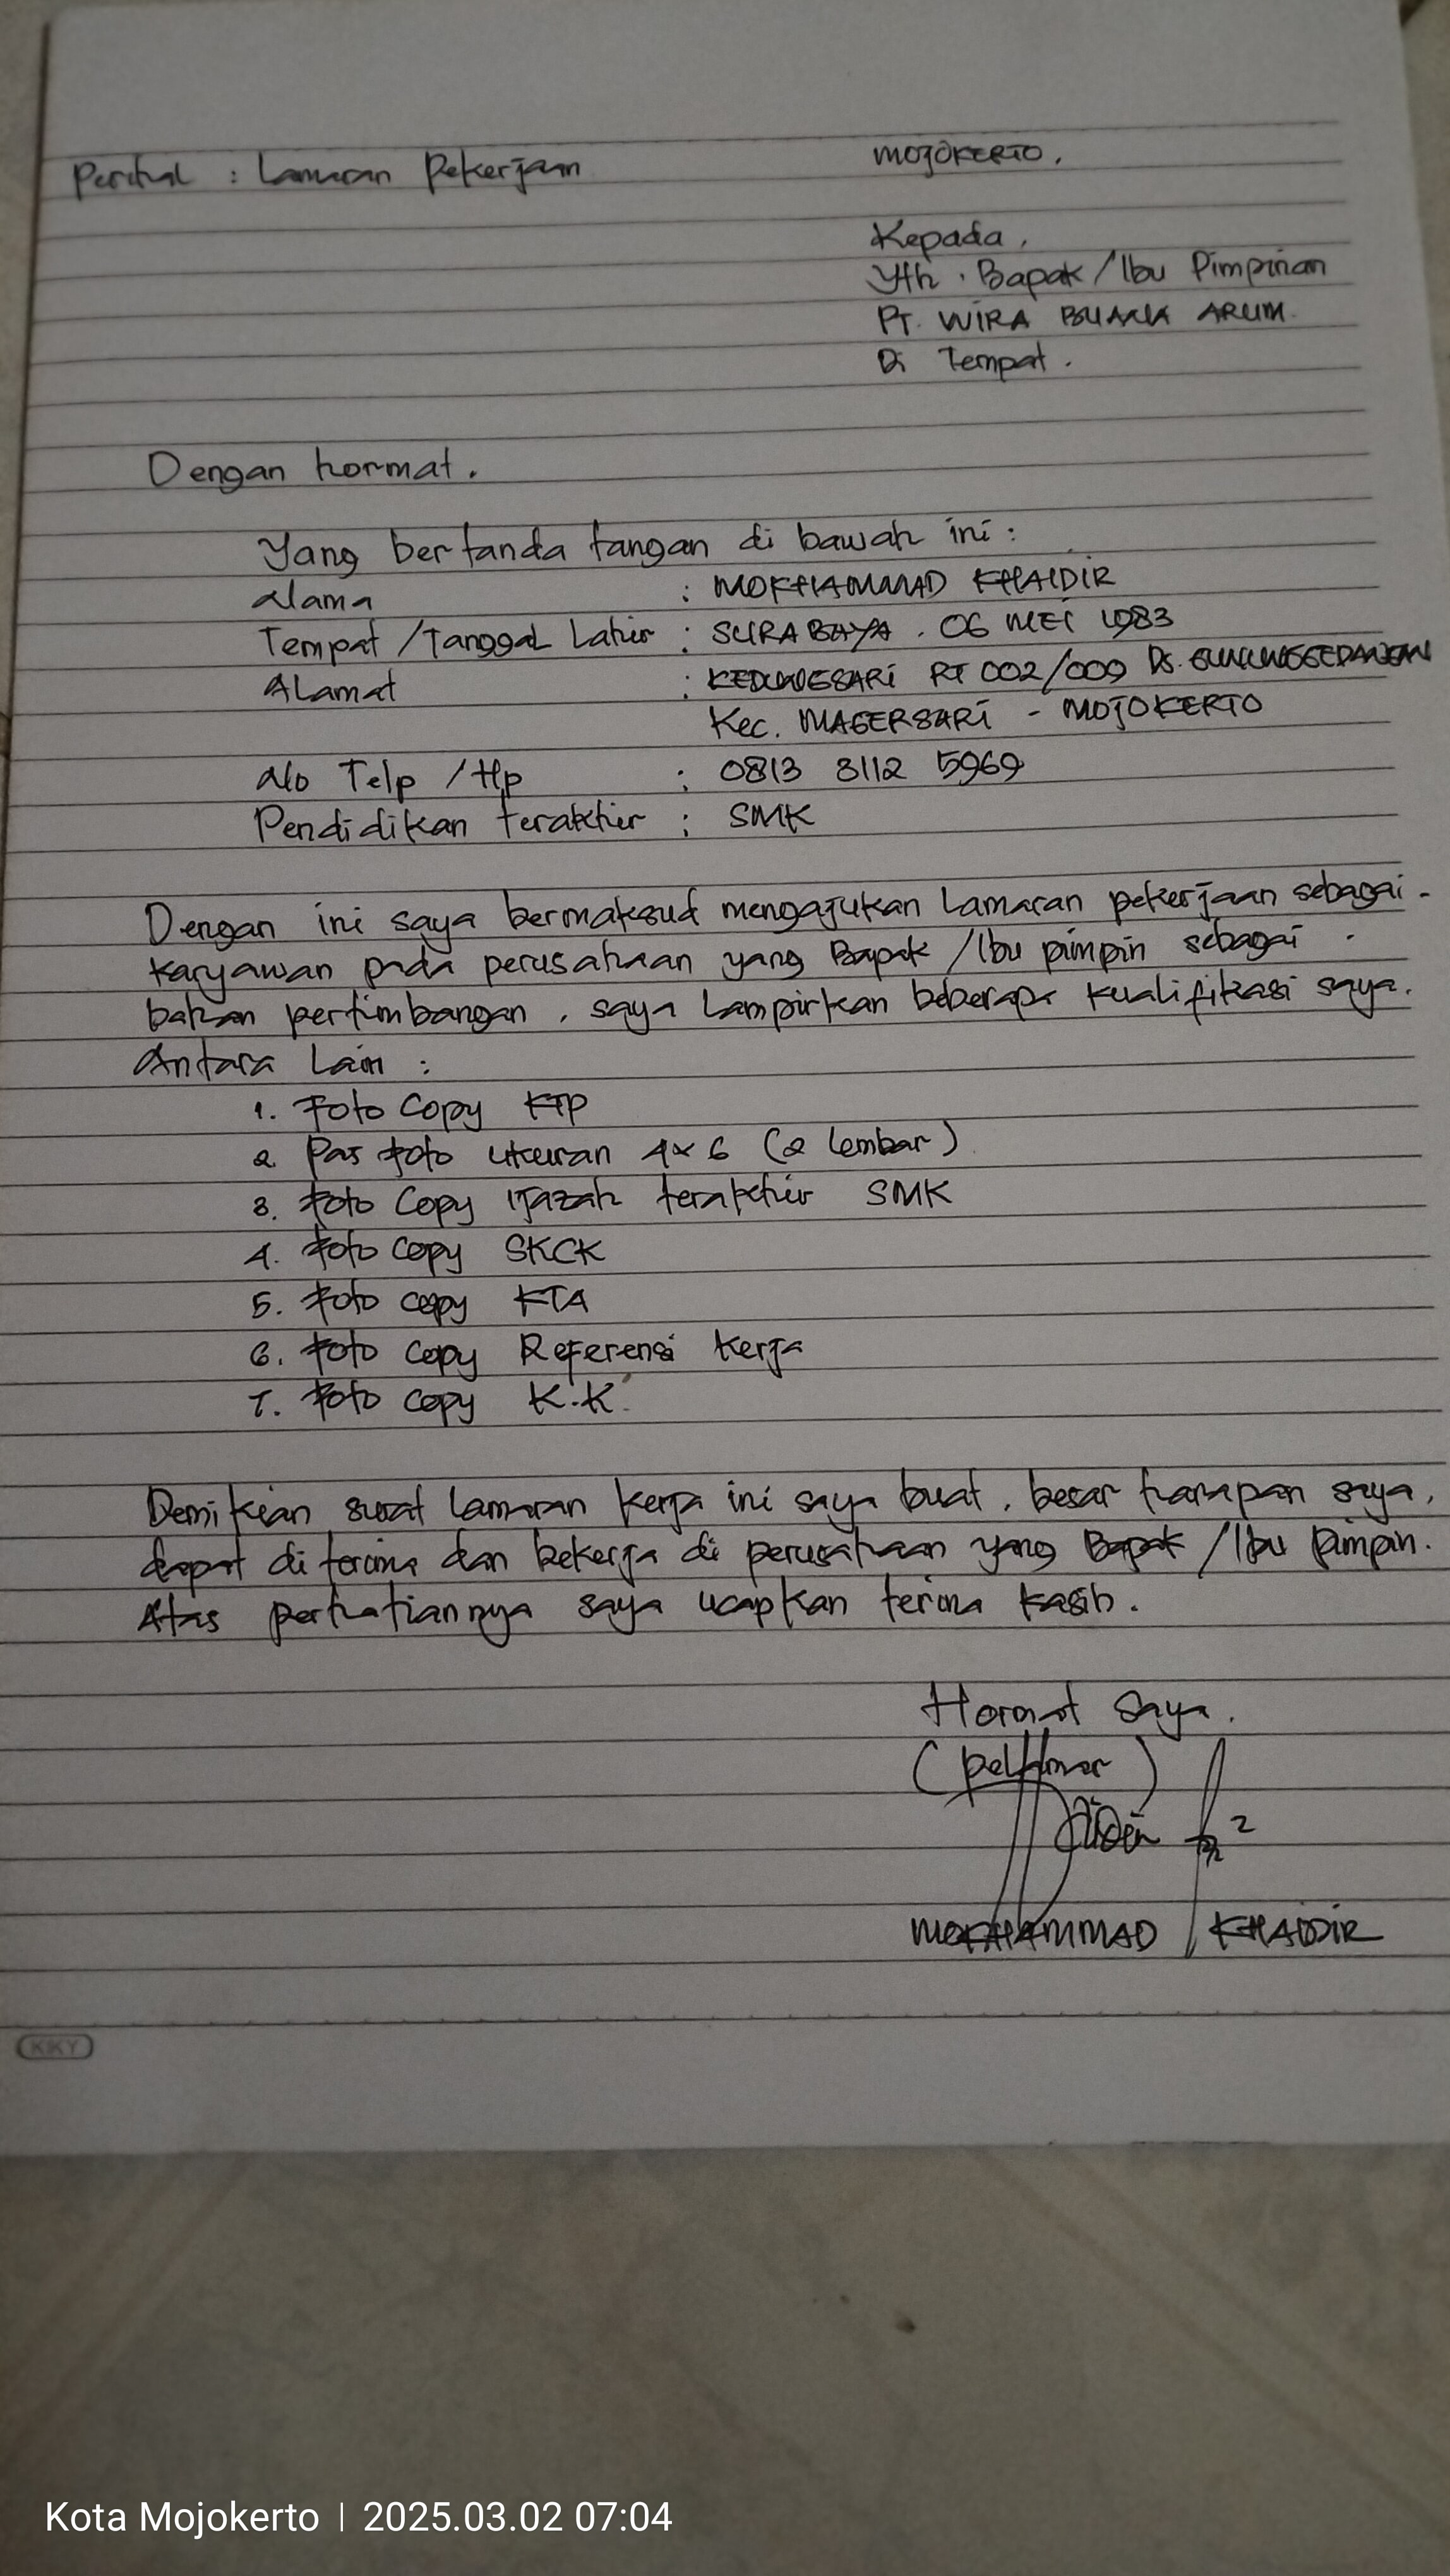 Perihal : Lamaran Pekerjaan
MOJOKERTO,
Kepada,
Yth. Bapak/Ibu Pimpinan
PT. WIRA BUANA ARUM.
Di Tempat.
Dengan hormat.
Yang bertanda tangan di bawah ini :
Nama : MOKHAMMAD KHAIDIR
Tempat/Tanggal Lahir : SURABAYA. 06 MEI 1983
Alamat : KEDUNGSARI RT 002/009 Ds. GUNUNGGEDANGAN
Kec. MAGERSARI - MOJOKERTO
No Telp/Hp : 0813 3112 5969
Pendidikan terakhir : SMK
Dengan ini saya bermaksud mengajukan Lamaran pekerjaan sebagai -
karyawan pada perusahaan yang Bapak/Ibu pimpin sebagai .
bahan pertimbangan, saya Lampirkan beberapa kualifikasi saya.
Antara Lain :
1. Foto Copy KTP
2. Pas foto ukuran 4x6 (2 lembar)
3. Foto Copy Ijazah terakhir SMK
4. Foto Copy SKCK
5. Foto copy KTA
6. Foto copy Referensi Kerja
7. Foto copy K.K.
Demikian surat lamaran kerja ini saya buat, besar harapan saya,
dapat di terima dan bekerja di perusahaan yang Bapak/Ibu pimpin.
Atas perhatiannya saya ucapkan terima kasih.
Hormat Saya.
(pelamar)
MOKHAMMAD KHAIDIR
KIKY
Kota Mojokerto | 2025.03.02 07:04